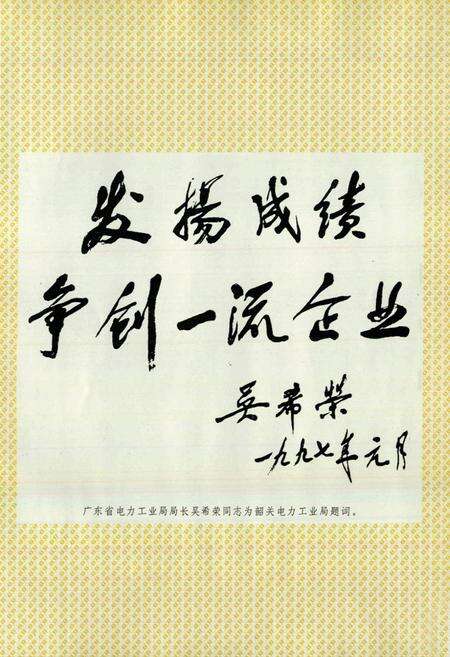 发揚成绩
争创一流企业
吴希荣
一九九七年元月
广东省电力工业局局长吴希荣同志为韶关电力工业局题词。